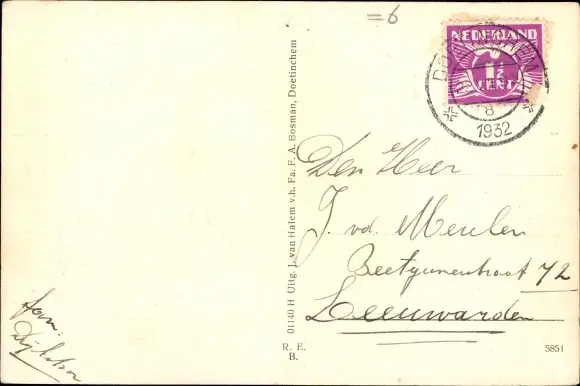 =6
NEDERLAND
1½
CENT
8
1932
Den Heer
J. vd. Meulen
Beetgumerstraat 72
Leeuwarden
fam:
Dijkstra
01140 H Uitg. J. van Halem v.h. Fa. F. A. Bosman, Doetinchem
R. E.
B.
5851